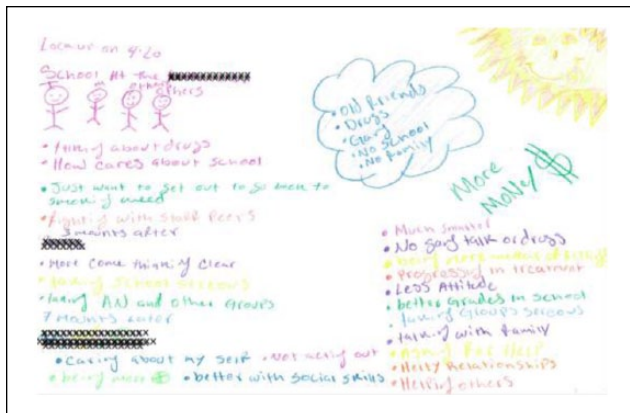 Locaur on 4:20
School At the
others
• talking about drugs
• How cares about school
• Just want to get out to go back to
smoking weed
• fighting with staff Peers
3 maints after
• More come thinking clear
• taking school sereous
• taking AN and other Groups
7 maints later
• Caring about my self • Not acting out
• being most • better with social skills
• Old friends
• Drugs
• Gang
• No school
• No family
More
Money $
• Much smarter
• No gang talk or drugs
• being more
• Progressing in treatment
• Less Attitude
• better Grades in school
• taking Groups sereous
• talking with family
• Asking For Help
• Helty Relationships
• Helping others